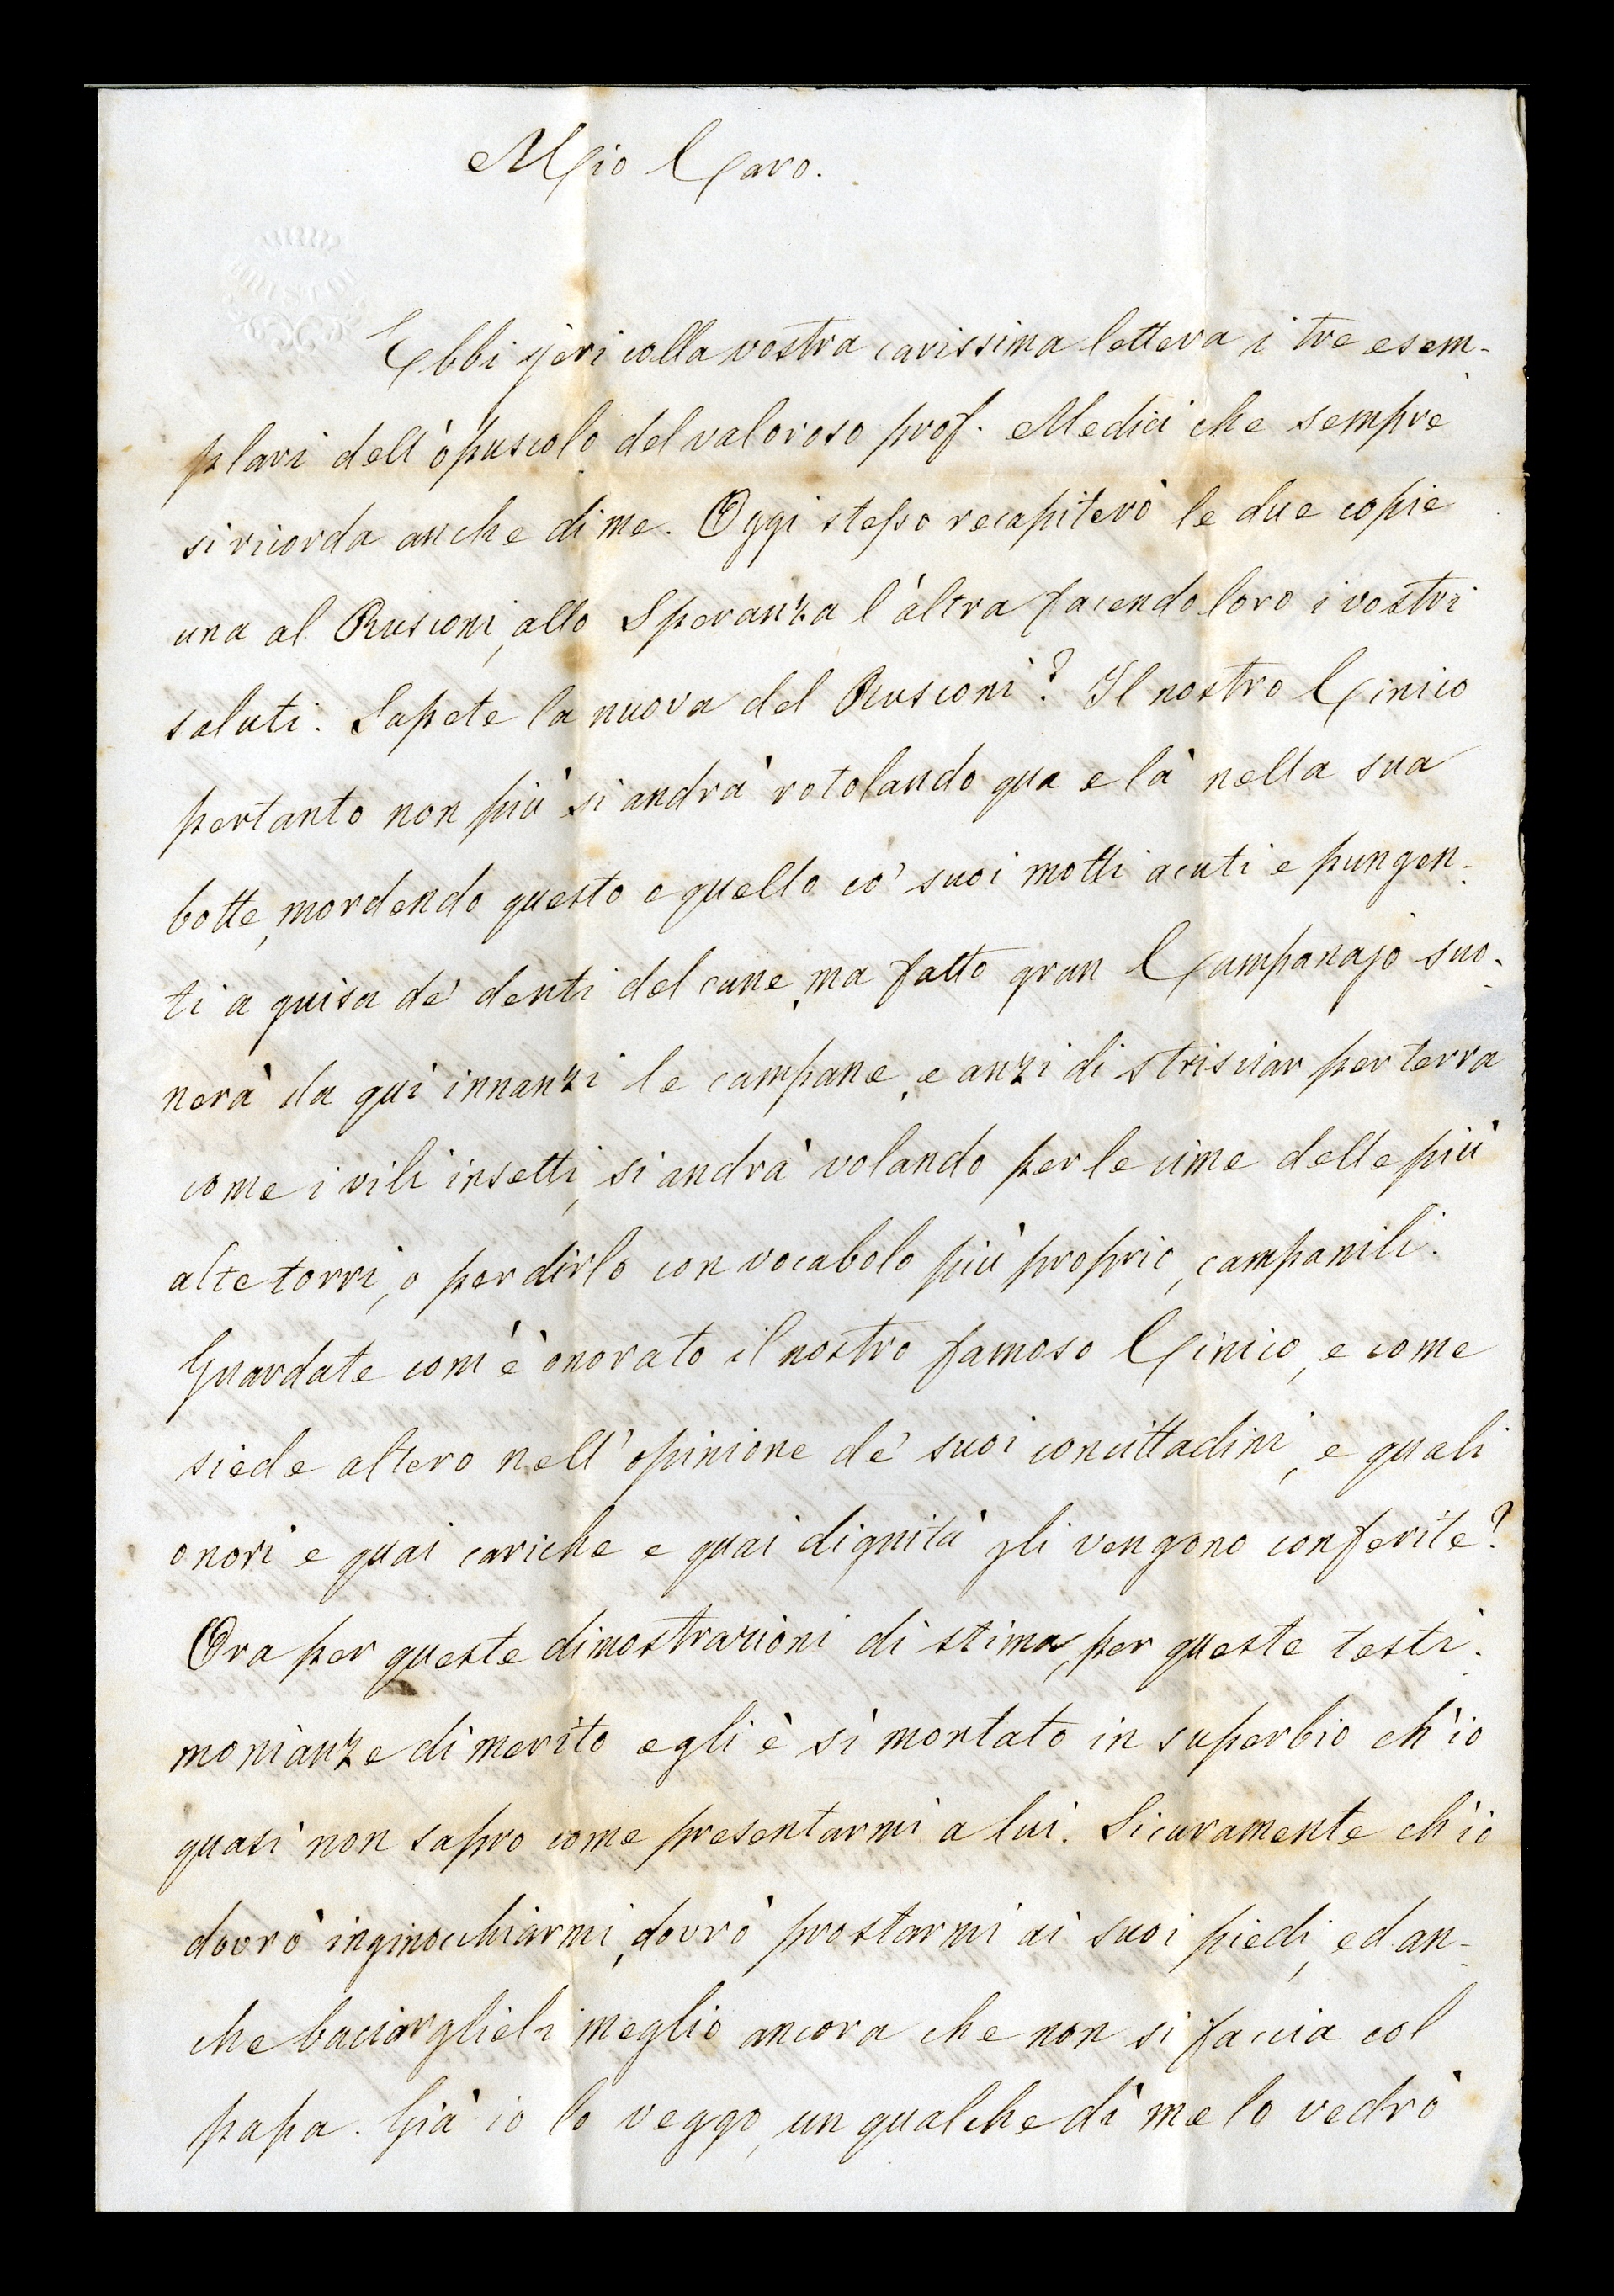 Mio Caro.
Ebbi jeri colla vostra carissima lettera i tre esem-
plari dell'opuscolo del valoroso prof. Medici che sempre
si ricorda anche di me. Oggi stesso recapiterò le due copie
una al Rusconi, allo Speranza l'altra facendo loro i vostri
saluti. Sapete la nuova del Rusconi? Il nostro Cinico
pertanto non più si andrà rotolando qua e là nella sua
botte, mordendo questo e quello co' suoi motti acuti e pungen-
ti a guisa de' denti del cane, ma fatto gran Campanajo suo-
nerà da qui innanzi le campane, e anzi di strisciar per terra
come i vili insetti, si andrà volando per le cime delle più
alte torri, o per dirlo con vocabolo più proprio, campanili.
Guardate com'è onorato il nostro famoso Cinico, e come
siede altero nell'opinione de' suoi concittadini, e quali
onori e quai cariche e quai dignità gli vengono conferite?
Ora per queste dimostrazioni di stima, per queste testi-
monianze di merito egli è sì montato in superbio ch'io
quasi non sapro come presentarmi a lui. Sicuramente ch'io
dovrò inginocchiarmi, dovrò prostarmi ai suoi piedi, ed an-
che baciarglieli meglio ancora che non si faccia col
papa. Già io lo veggo, un qualche dì me lo vedrò